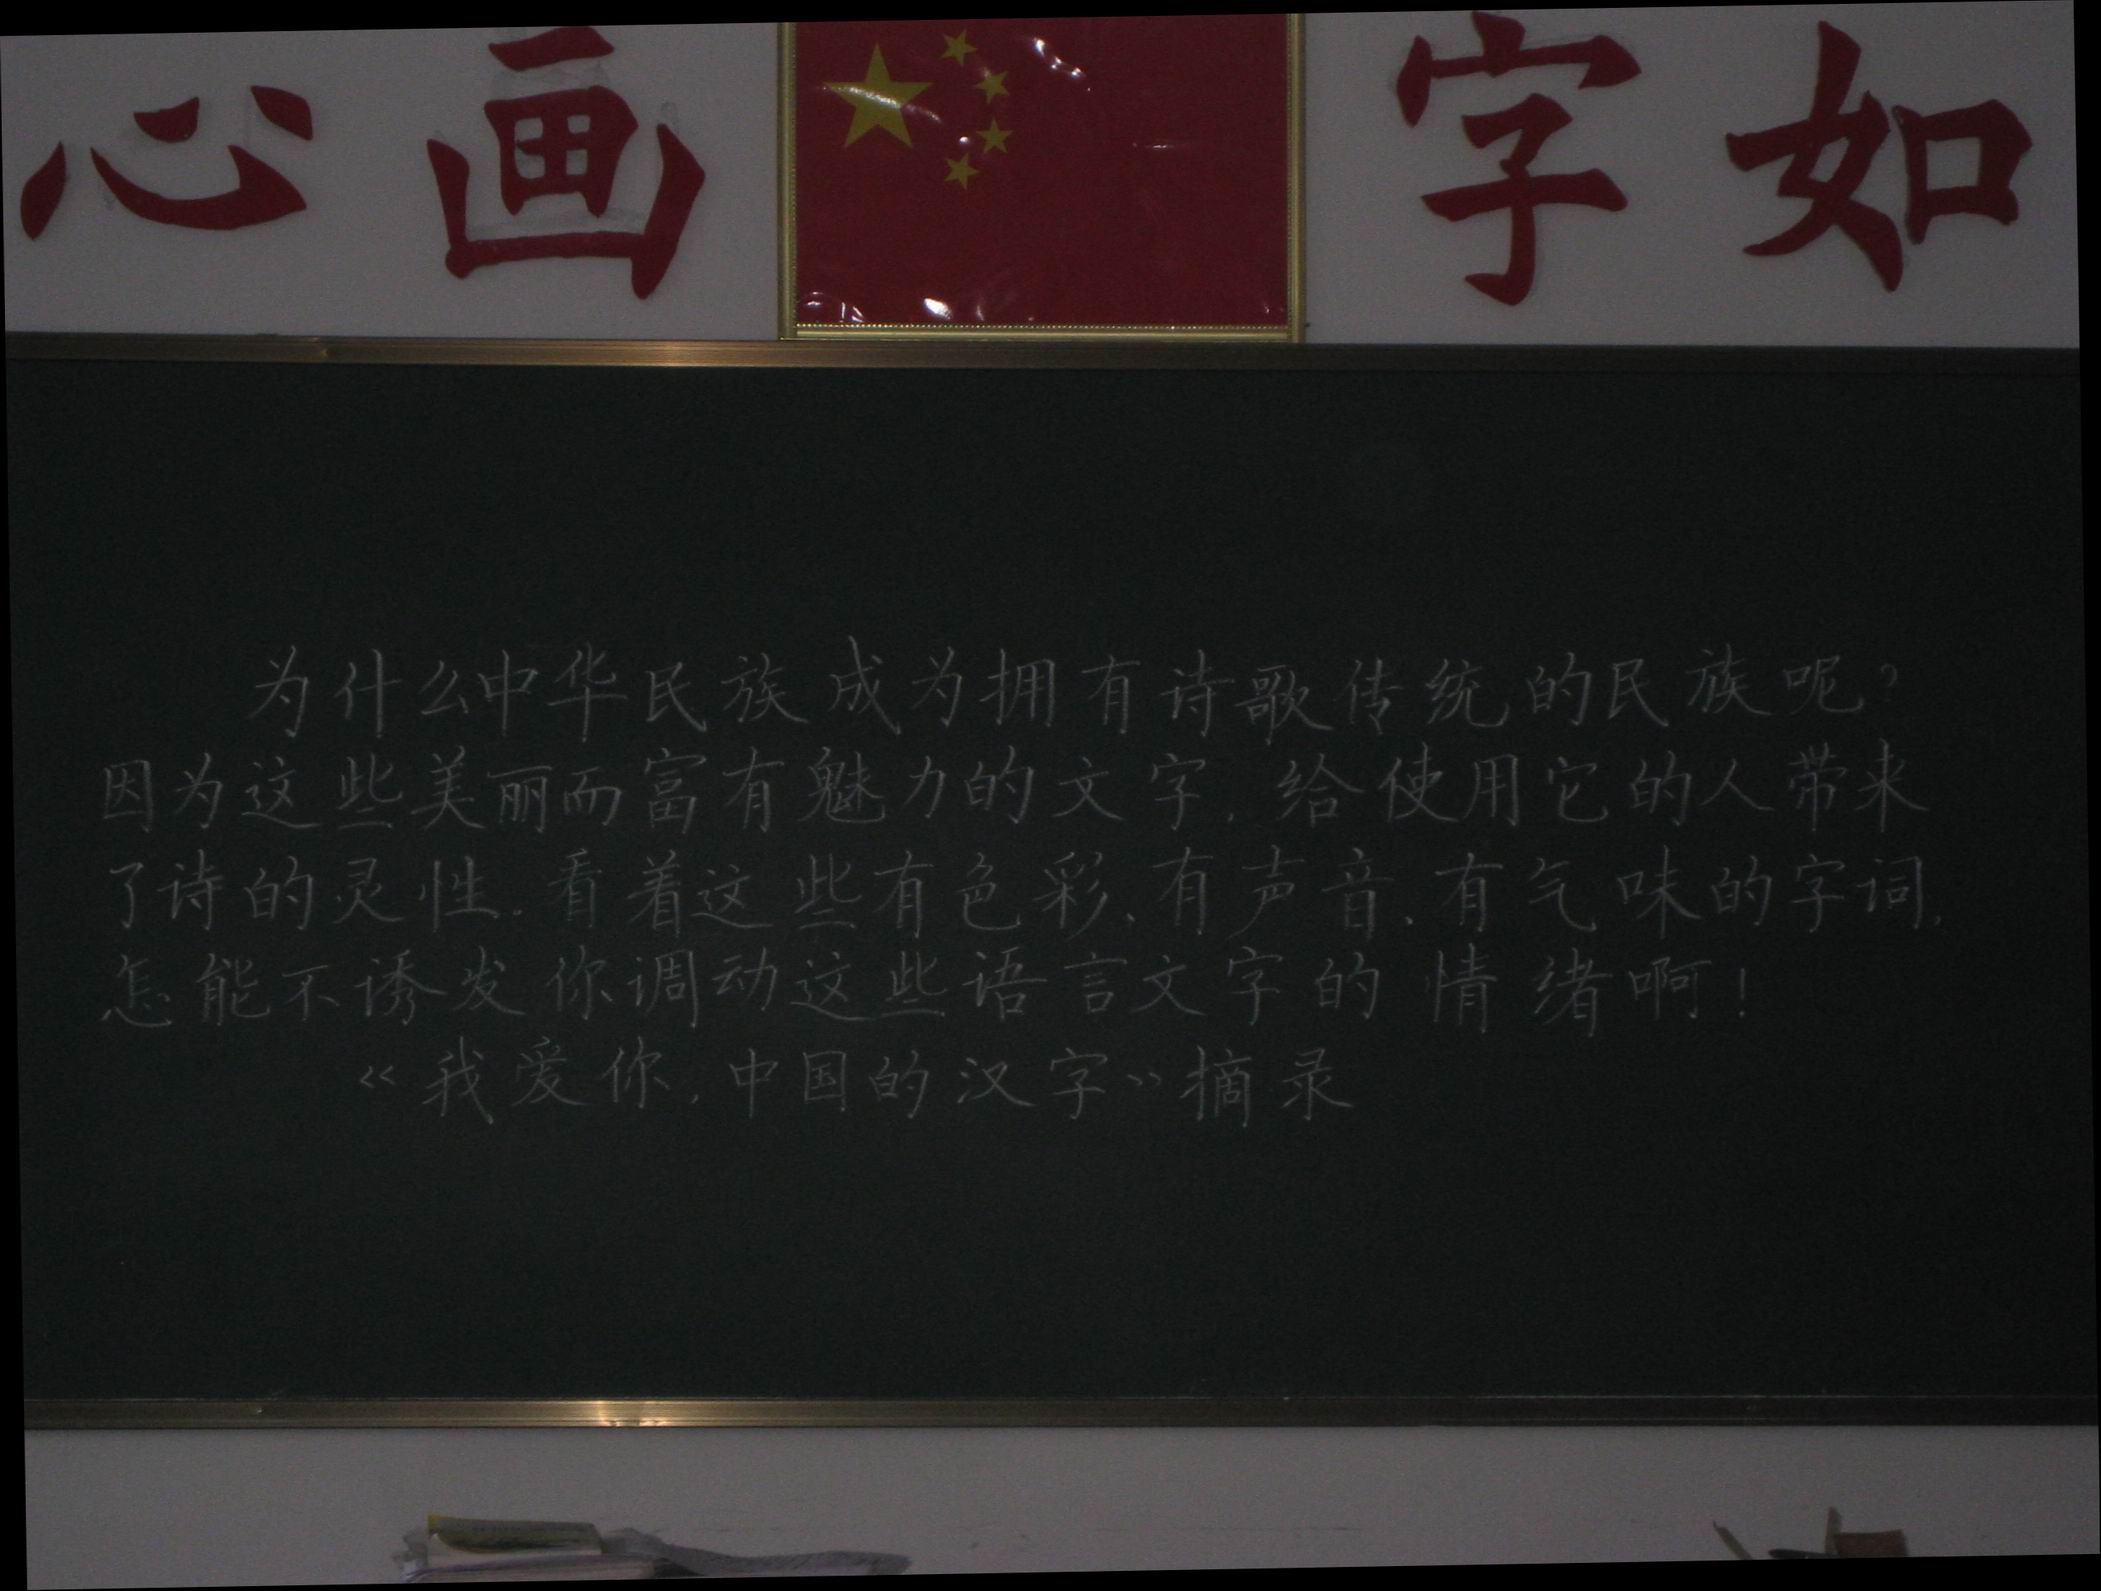 心画 字如
为什么中华民族成为拥有诗歌传统的民族呢?
因为这些美丽而富有魅力的文字,给使用它的人带来
了诗的灵性。看着这些有色彩、有声音、有气味的字词,
怎能不诱发你调动这些语言文字的情绪啊!
《我爱你,中国的汉字》摘录